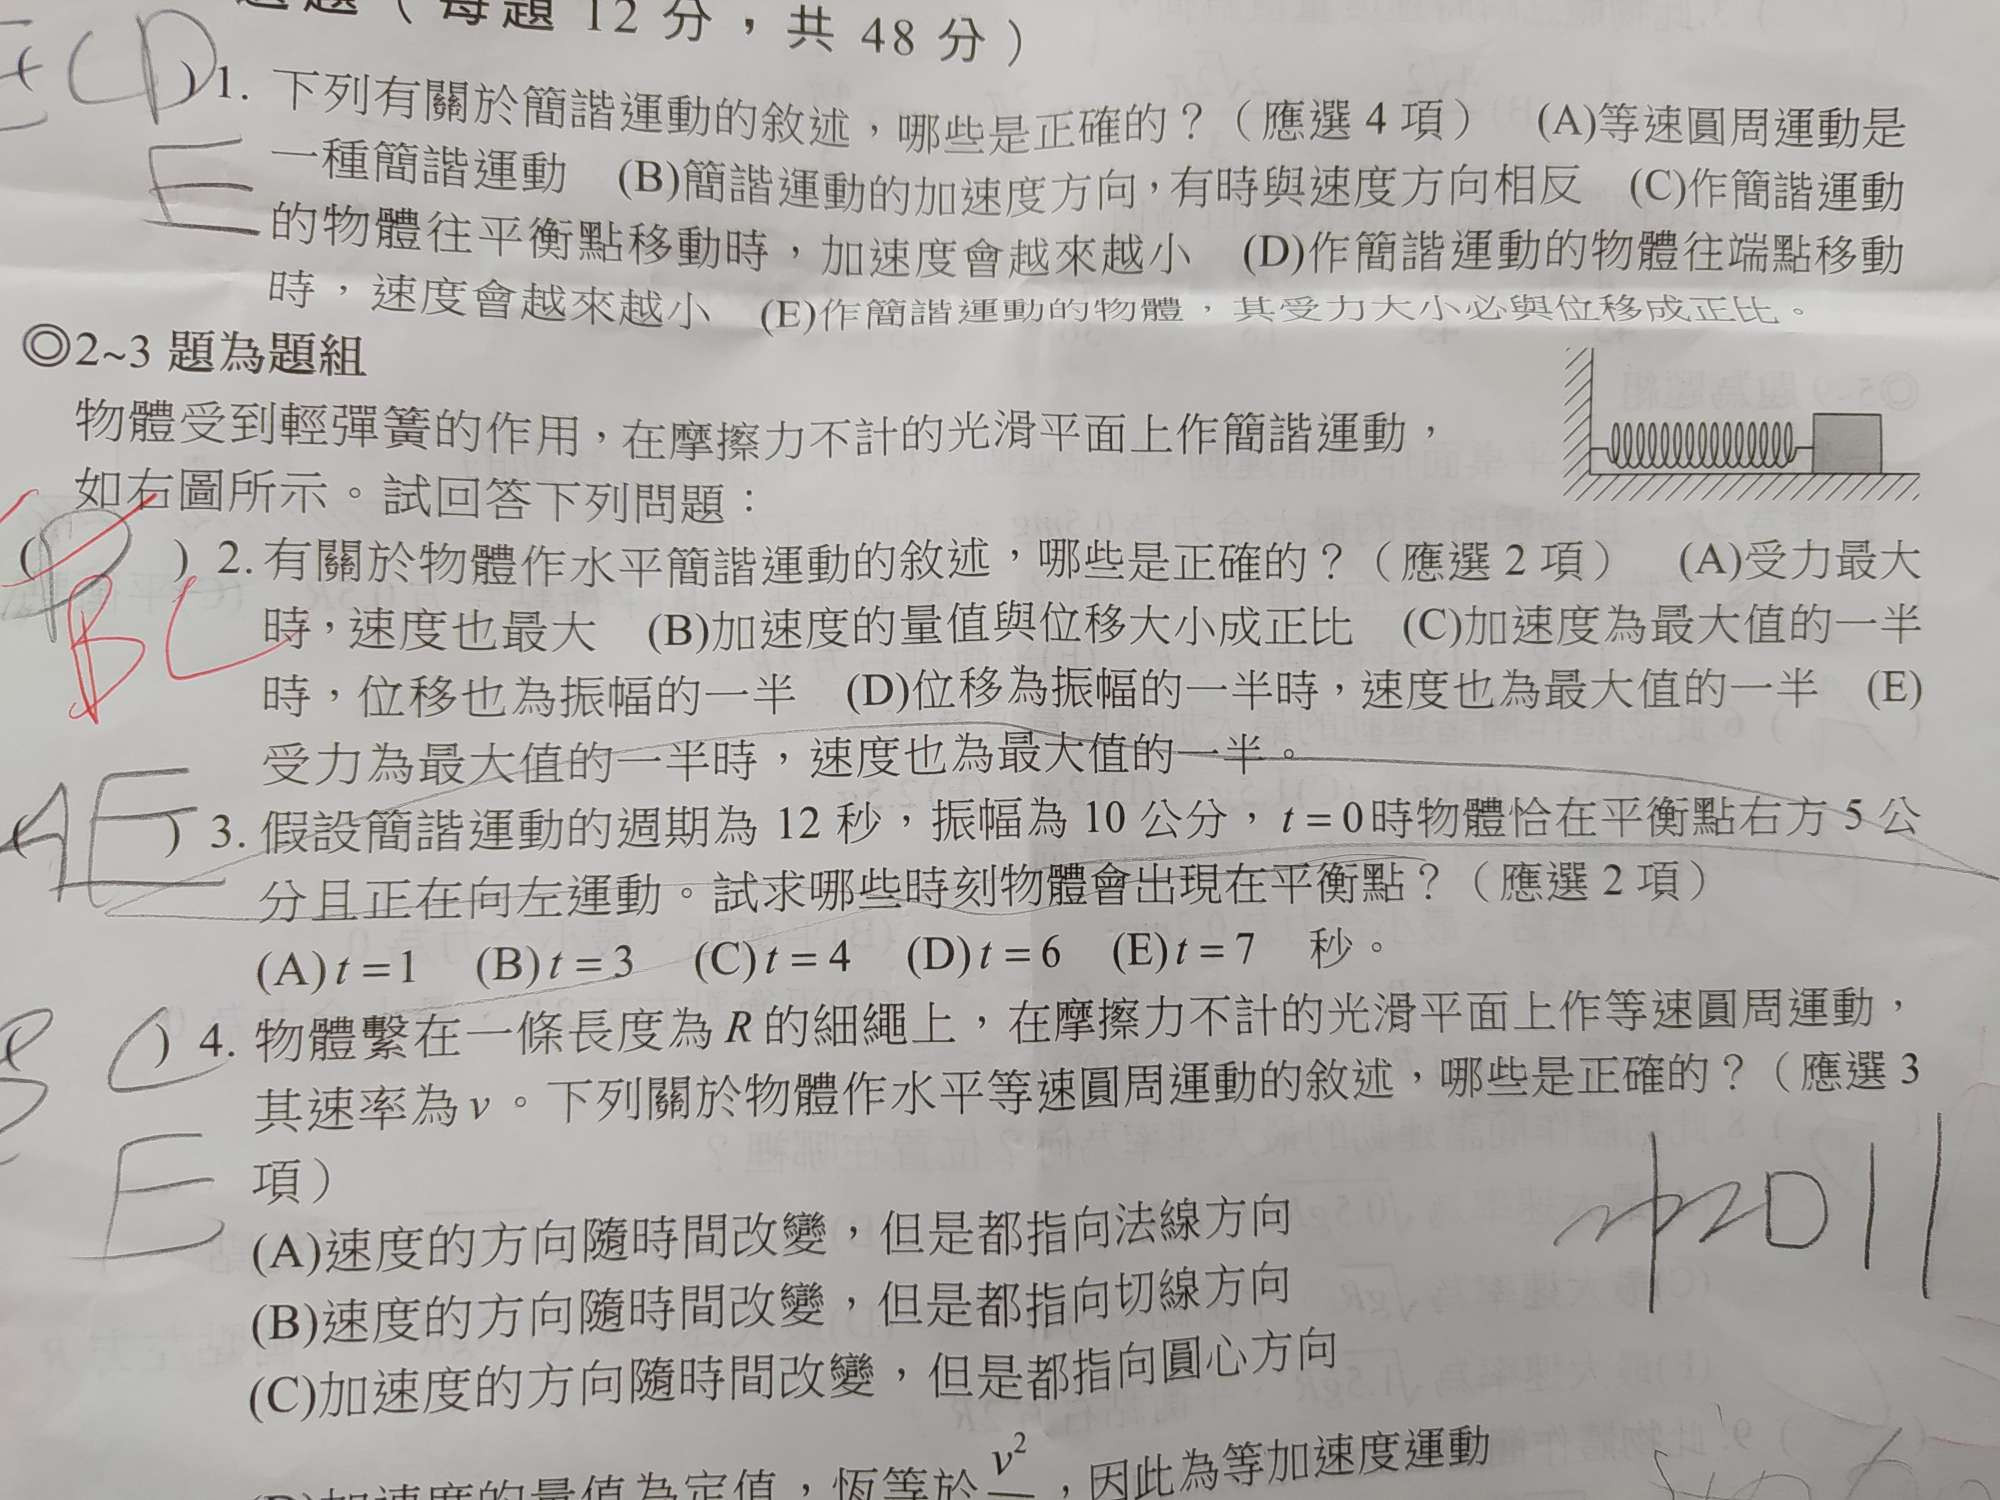 選題（每題 12 分，共 48 分）
CD
E
)1. 下列有關於簡諧運動的敘述，哪些是正確的？（應選 4 項） (A)等速圓周運動是
一種簡諧運動 (B)簡諧運動的加速度方向，有時與速度方向相反 (C)作簡諧運動
的物體往平衡點移動時，加速度會越來越小 (D)作簡諧運動的物體往端點移動
時，速度會越來越小 (E)作簡諧運動的物體，其受力大小必與位移成正比。
◎2~3 題為題組
物體受到輕彈簧的作用，在摩擦力不計的光滑平面上作簡諧運動，
如右圖所示。試回答下列問題：
BC
( ) 2. 有關於物體作水平簡諧運動的敘述，哪些是正確的？（應選 2 項） (A)受力最大
時，速度也最大 (B)加速度的量值與位移大小成正比 (C)加速度為最大值的一半
時，位移也為振幅的一半 (D)位移為振幅的一半時，速度也為最大值的一半 (E)
受力為最大值的一半時，速度也為最大值的一半。
AE
( ) 3. 假設簡諧運動的週期為 12 秒，振幅為 10 公分，t = 0時物體恰在平衡點右方 5 公
分且正在向左運動。試求哪些時刻物體會出現在平衡點？（應選 2 項）
(A) t = 1 (B) t = 3 (C) t = 4 (D) t = 6 (E) t = 7 秒。
C
E
) 4. 物體繫在一條長度為 R 的細繩上，在摩擦力不計的光滑平面上作等速圓周運動，
其速率為 v。下列關於物體作水平等速圓周運動的敘述，哪些是正確的？（應選 3
項）
(A)速度的方向隨時間改變，但是都指向法線方向
(B)速度的方向隨時間改變，但是都指向切線方向
(C)加速度的方向隨時間改變，但是都指向圓心方向
(D)加速度的量值為定值，恆等於 v²，因此為等加速度運動